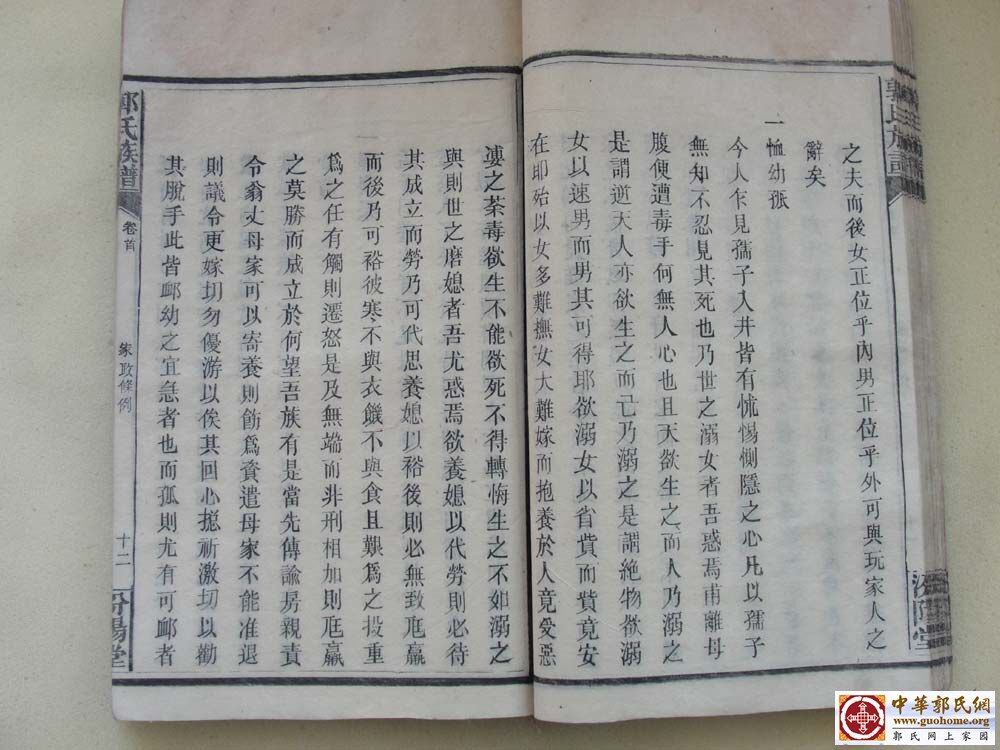 郭氏族譜
汾陽堂
之夫而後女正位乎內男正位乎外可與玩家人之
辭矣
一恤幼孤
今人乍見孺子入井皆有怵惕惻隱之心凡以孺子
無知不忍見其死也乃世之溺女者吾惑焉甫離母
腹便遭毒手何無人心也且天欲生之而人乃溺之
是謂逆天人亦欲生之而己乃溺之是謂絶物欲溺
女以速男而男其可得耶欲溺女以省貲而貲竟安
在耶殆以女多難撫女大難嫁而抱養於人竟受惡
婆之荼毒欲生不能欲死不得轉悔生之不如溺之
與則世之磨媳者吾尤惑焉欲養媳以代勞則必待
其成立而勞乃可代思養媳以裕後則必無致尫羸
而後乃可裕彼寒不與衣饑不與食且艱爲之投重
爲之任有觸則遷怒是及無端而非刑相加則尫羸
之莫勝而成立於何望吾族有是當先傳諭房親責
令翁丈母家可以寄養則飭爲資遣母家不能准退
則議令更嫁切勿優游以俟其回心摠祈激切以勸
其脫手此皆卹幼之宜急者也而孤則尤有可卹者
郭氏族譜
卷首
家政條例
十二
汾陽堂
中華郭氏網
www.guohome.org
郭氏网上家园